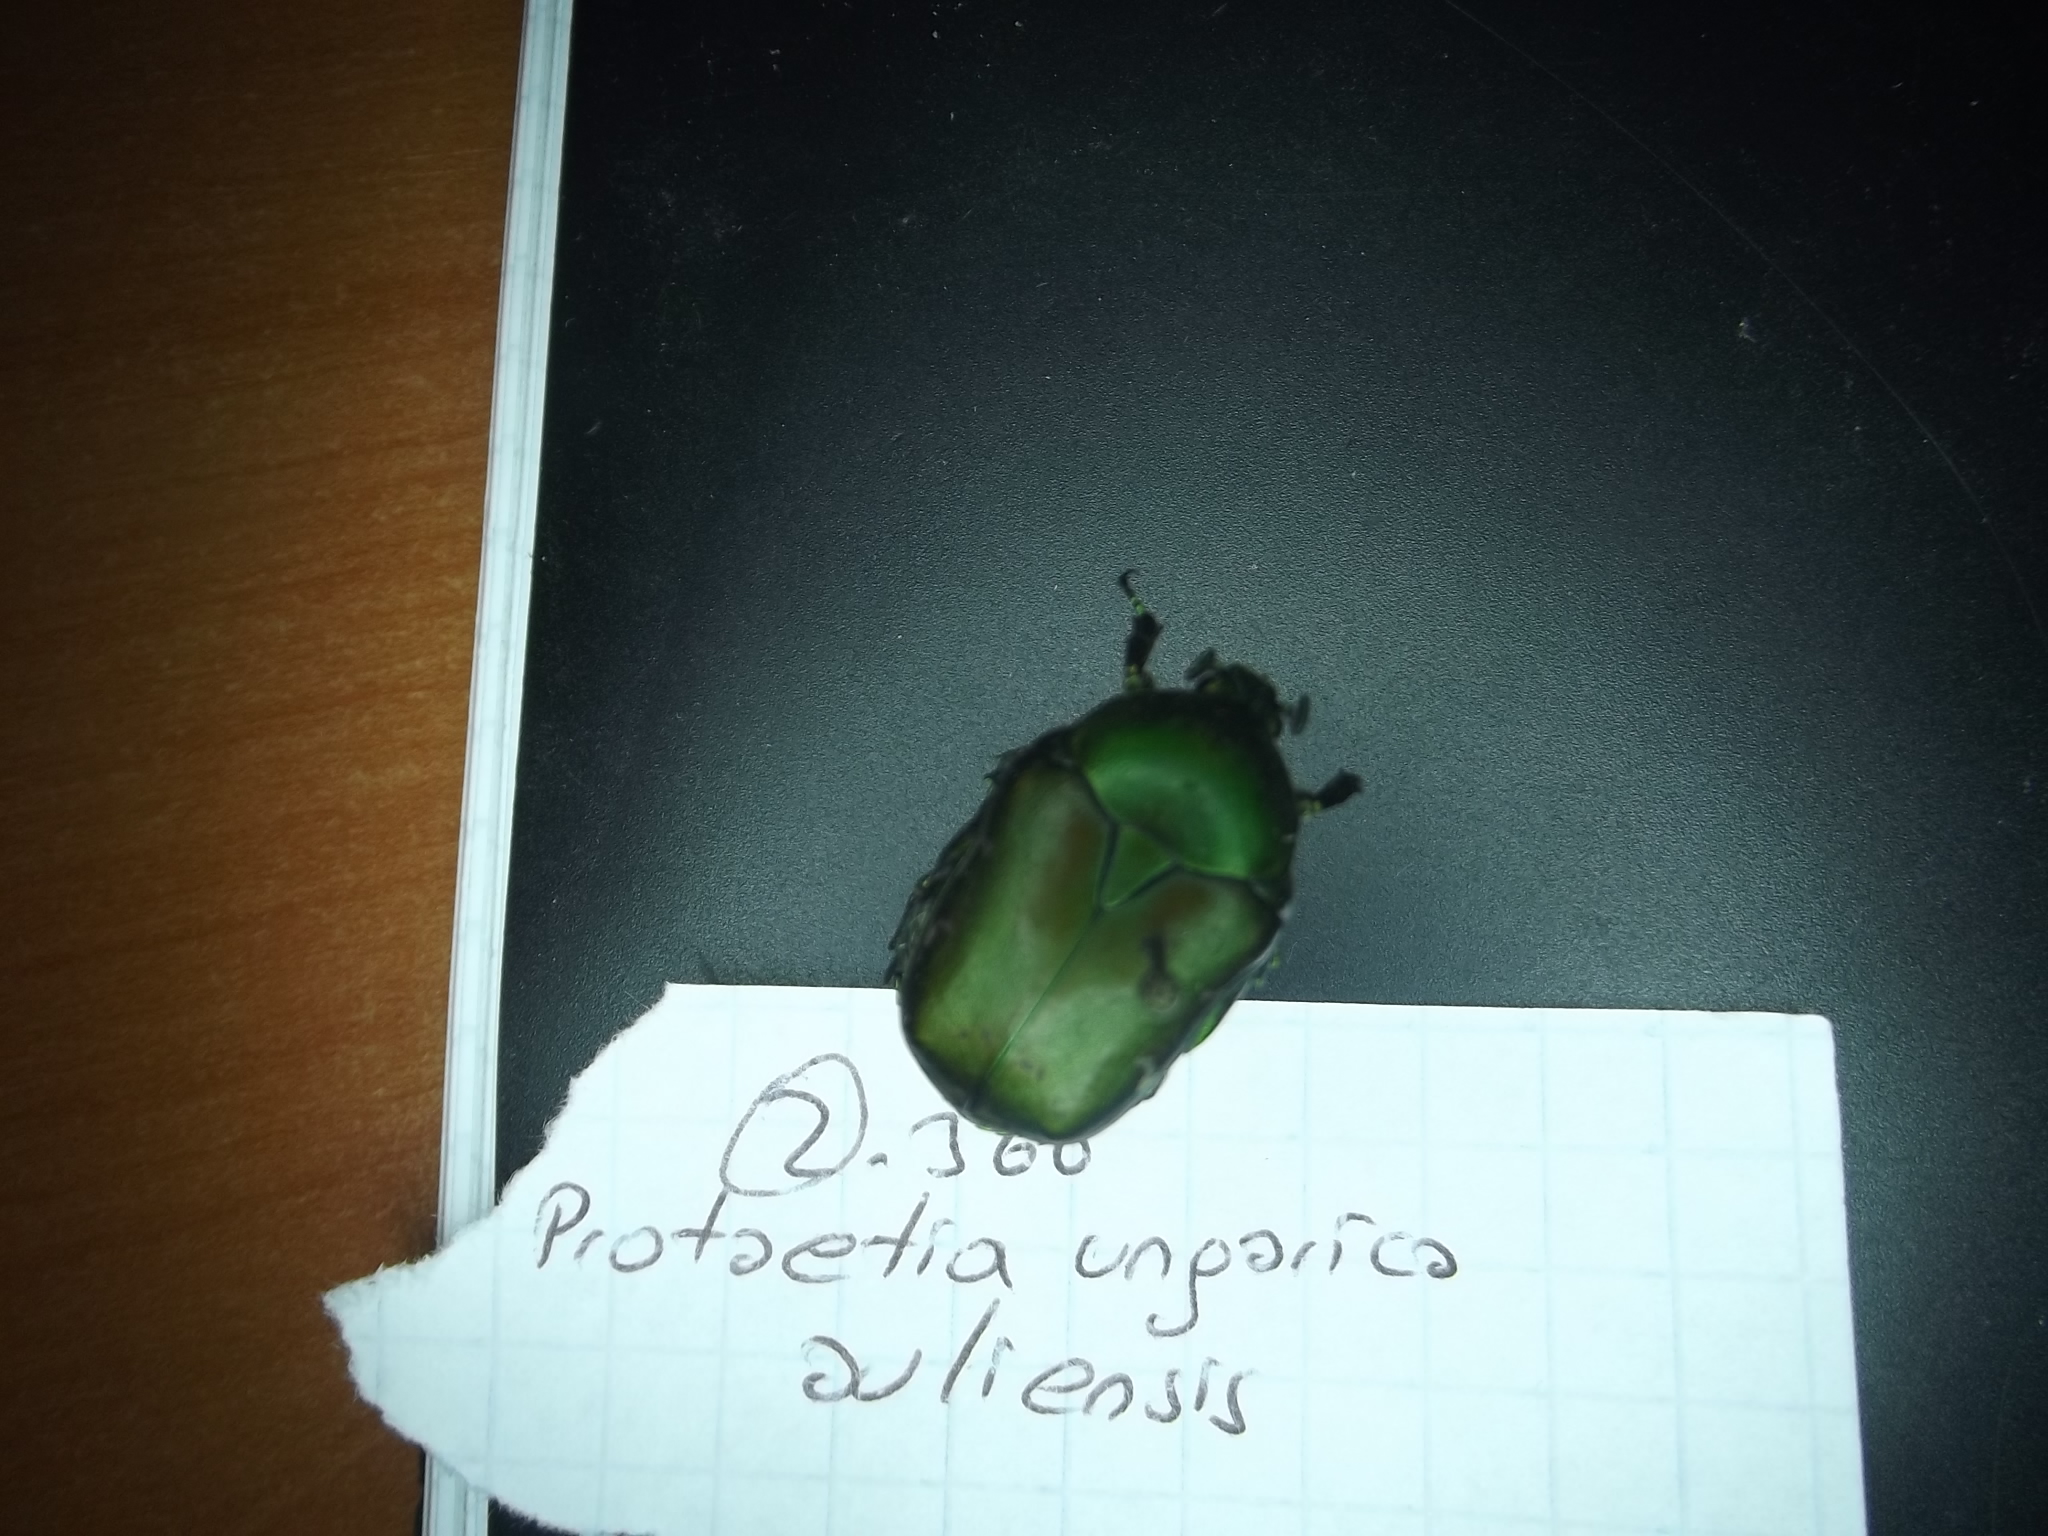 2.300
Protaetia ungarica
auliensis